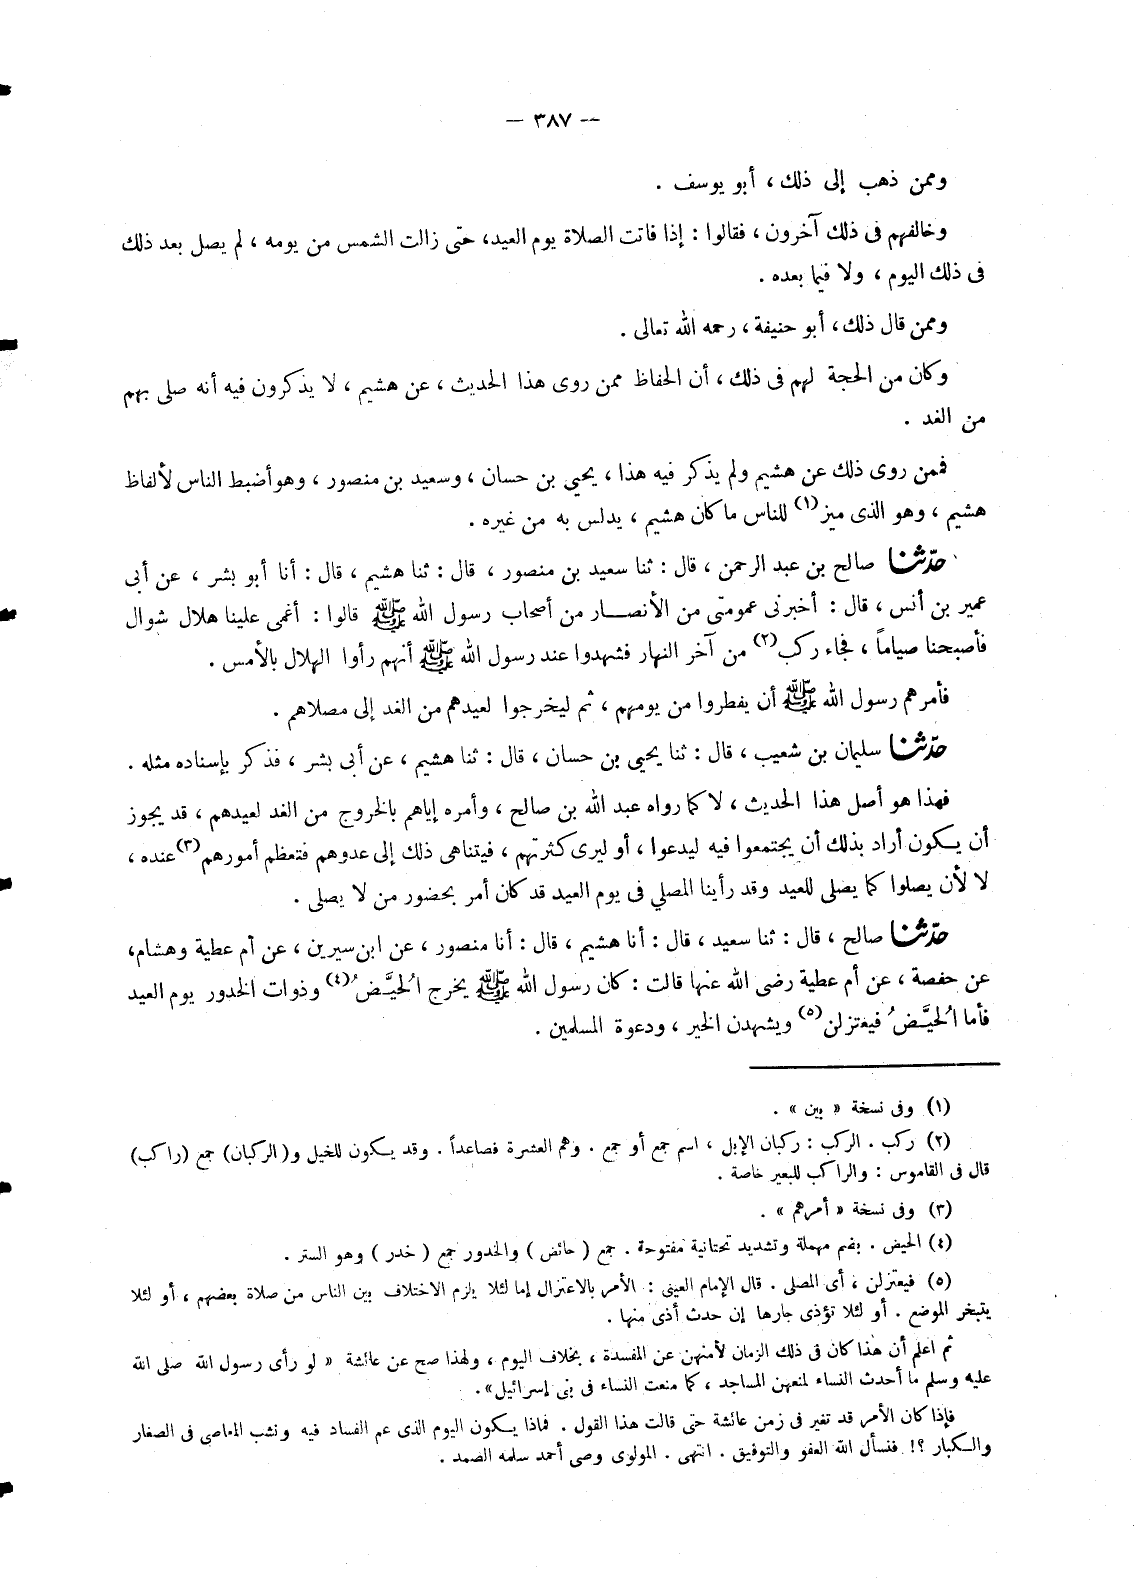 — ٣٨٧ —
وممن ذهب إلى ذلك ، أبو يوسف .
وخالفهم فى ذلك آخرون ، فقالوا : إذا فاتت الصلاة يوم العيد، حتى زالت الشمس من يومه ، لم يصل بعد ذلك
فى ذلك اليوم ، ولا فيما بعده .
وممن قال ذلك، أبو حنيفة ، رحمه الله تعالى .
وكان من الحجة لهم فى ذلك ، أن الحفاظ ممن روى هذا الحديث ، عن هشيم ، لا يذكرون فيه أنه صلى بهم
من الغد .
فممن روى ذلك عن هشيم ولم يذكر فيه هذا ، يحيى بن حسان ، وسعيد بن منصور ، وهو أضبط الناس لألفاظ
هشيم ، وهو الذى ميز (١) للناس ما كان هشيم ، يدلس به من غيره .
حدّثنا صالح بن عبد الرحمن ، قال : ثنا سعيد بن منصور ، قال : ثنا هشيم ، قال : أنا أبو بشر ، عن أبى
عمير بن أنس ، قال : أخبرنى عمومتى من الأنصار من أصحاب رسول الله ﷺ قالوا : أغمى علينا هلال شوال
فأصبحنا صياماً ، فجاء ركب (٢) من آخر النهار فشهدوا عند رسول الله ﷺ أنهم رأوا الهلال بالأمس .
فأمرهم رسول الله ﷺ أن يفطروا من يومهم ، ثم ليخرجوا لعيدهم من الغد إلى مصلاهم .
حدّثنا سليمان بن شعيب ، قال : ثنا يحيى بن حسان ، قال : ثنا هشيم ، عن أبى بشر ، فذكر بإسناده مثله .
فهذا هو أصل هذا الحديث ، لا كما رواه عبد الله بن صالح ، وأمره إياهم بالخروج من الغد لعيدهم ، قد يجوز
أن يكون أراد بذلك أن يجتمعوا فيه ليدعوا ، أو ليرى كثرتهم ، فيتناهى ذلك إلى عدوهم فتعظم أمورهم (٣) عنده ،
لا لأن يصلوا كما يصلى للعيد وقد رأينا المصلي فى يوم العيد قد كان أمر بحضور من لا يصلى .
حدّثنا صالح ، قال : ثنا سعيد ، قال : أنا هشيم ، قال : أنا منصور ، عن ابن سيرين ، عن أم عطية وهشام،
عن حفصة ، عن أم عطية رضى الله عنها قالت : كان رسول الله ﷺ يخرج الُحيَّضُ (٤) وذوات الخدور يوم العيد
فأما الُحيَّضُ فيعتزلن (٥) ويشهدن الخير ، ودعوة المسلمين .
(١) وفى نسخة « بين » .
(٢) ركب . الركب : ركبان الإبل ، اسم جمع أو جمع . وهم العشرة فصاعداً . وقد يكون للخيل و( الركبان) جمع (راكب)
قال فى القاموس : والراكب للبعير خاصة .
(٣) وفى نسخة « أمرهم » .
(٤) الحيض . بضم مهملة وتشديد تحتانية مفتوحة . جمع ( حائض ) والخدور جمع ( خدر ) وهو الستر .
(٥) فيعتزلن ، أى المصلى . قال الإمام العينى : الأمر بالاعتزال إما لئلا يلزم الاختلاف بين الناس من صلاة بعضهم ، أو لئلا
يتبخر الموضع . أو لئلا تؤذى جارها إن حدث أذى منها .
ثم اعلم أن هذا كان فى ذلك الزمان لأمنهن عن المفسدة ، بخلاف اليوم ، ولهذا صح عن عائشة « لو رأى رسول الله صلى الله
عليه وسلم ما أحدث النساء لمنعهن المساجد ، كما منعت النساء فى بنى إسرائيل» .
فإذا كان الأمر قد تغير فى زمن عائشة حتى قالت هذا القول . فماذا يكون اليوم الذى عم الفساد فيه ونشب المعاصى فى الصغار
والكبار ؟! فنسأل الله العفو والتوفيق . انتهى . المولوى وصى أحمد سلمه الصمد .